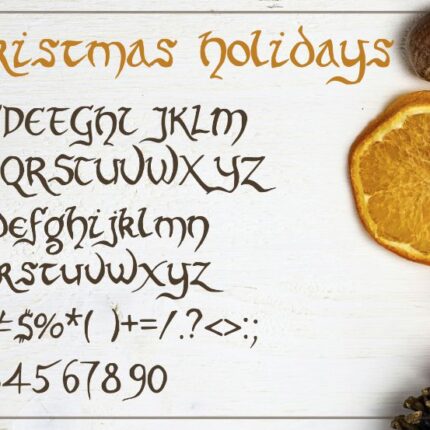 ristmas holidays
DEFGHI JKLM
QRSTUVWXYZ
defghijklmn
rstuvwxyz
#$%*( )+=/.?<>:;
4567890